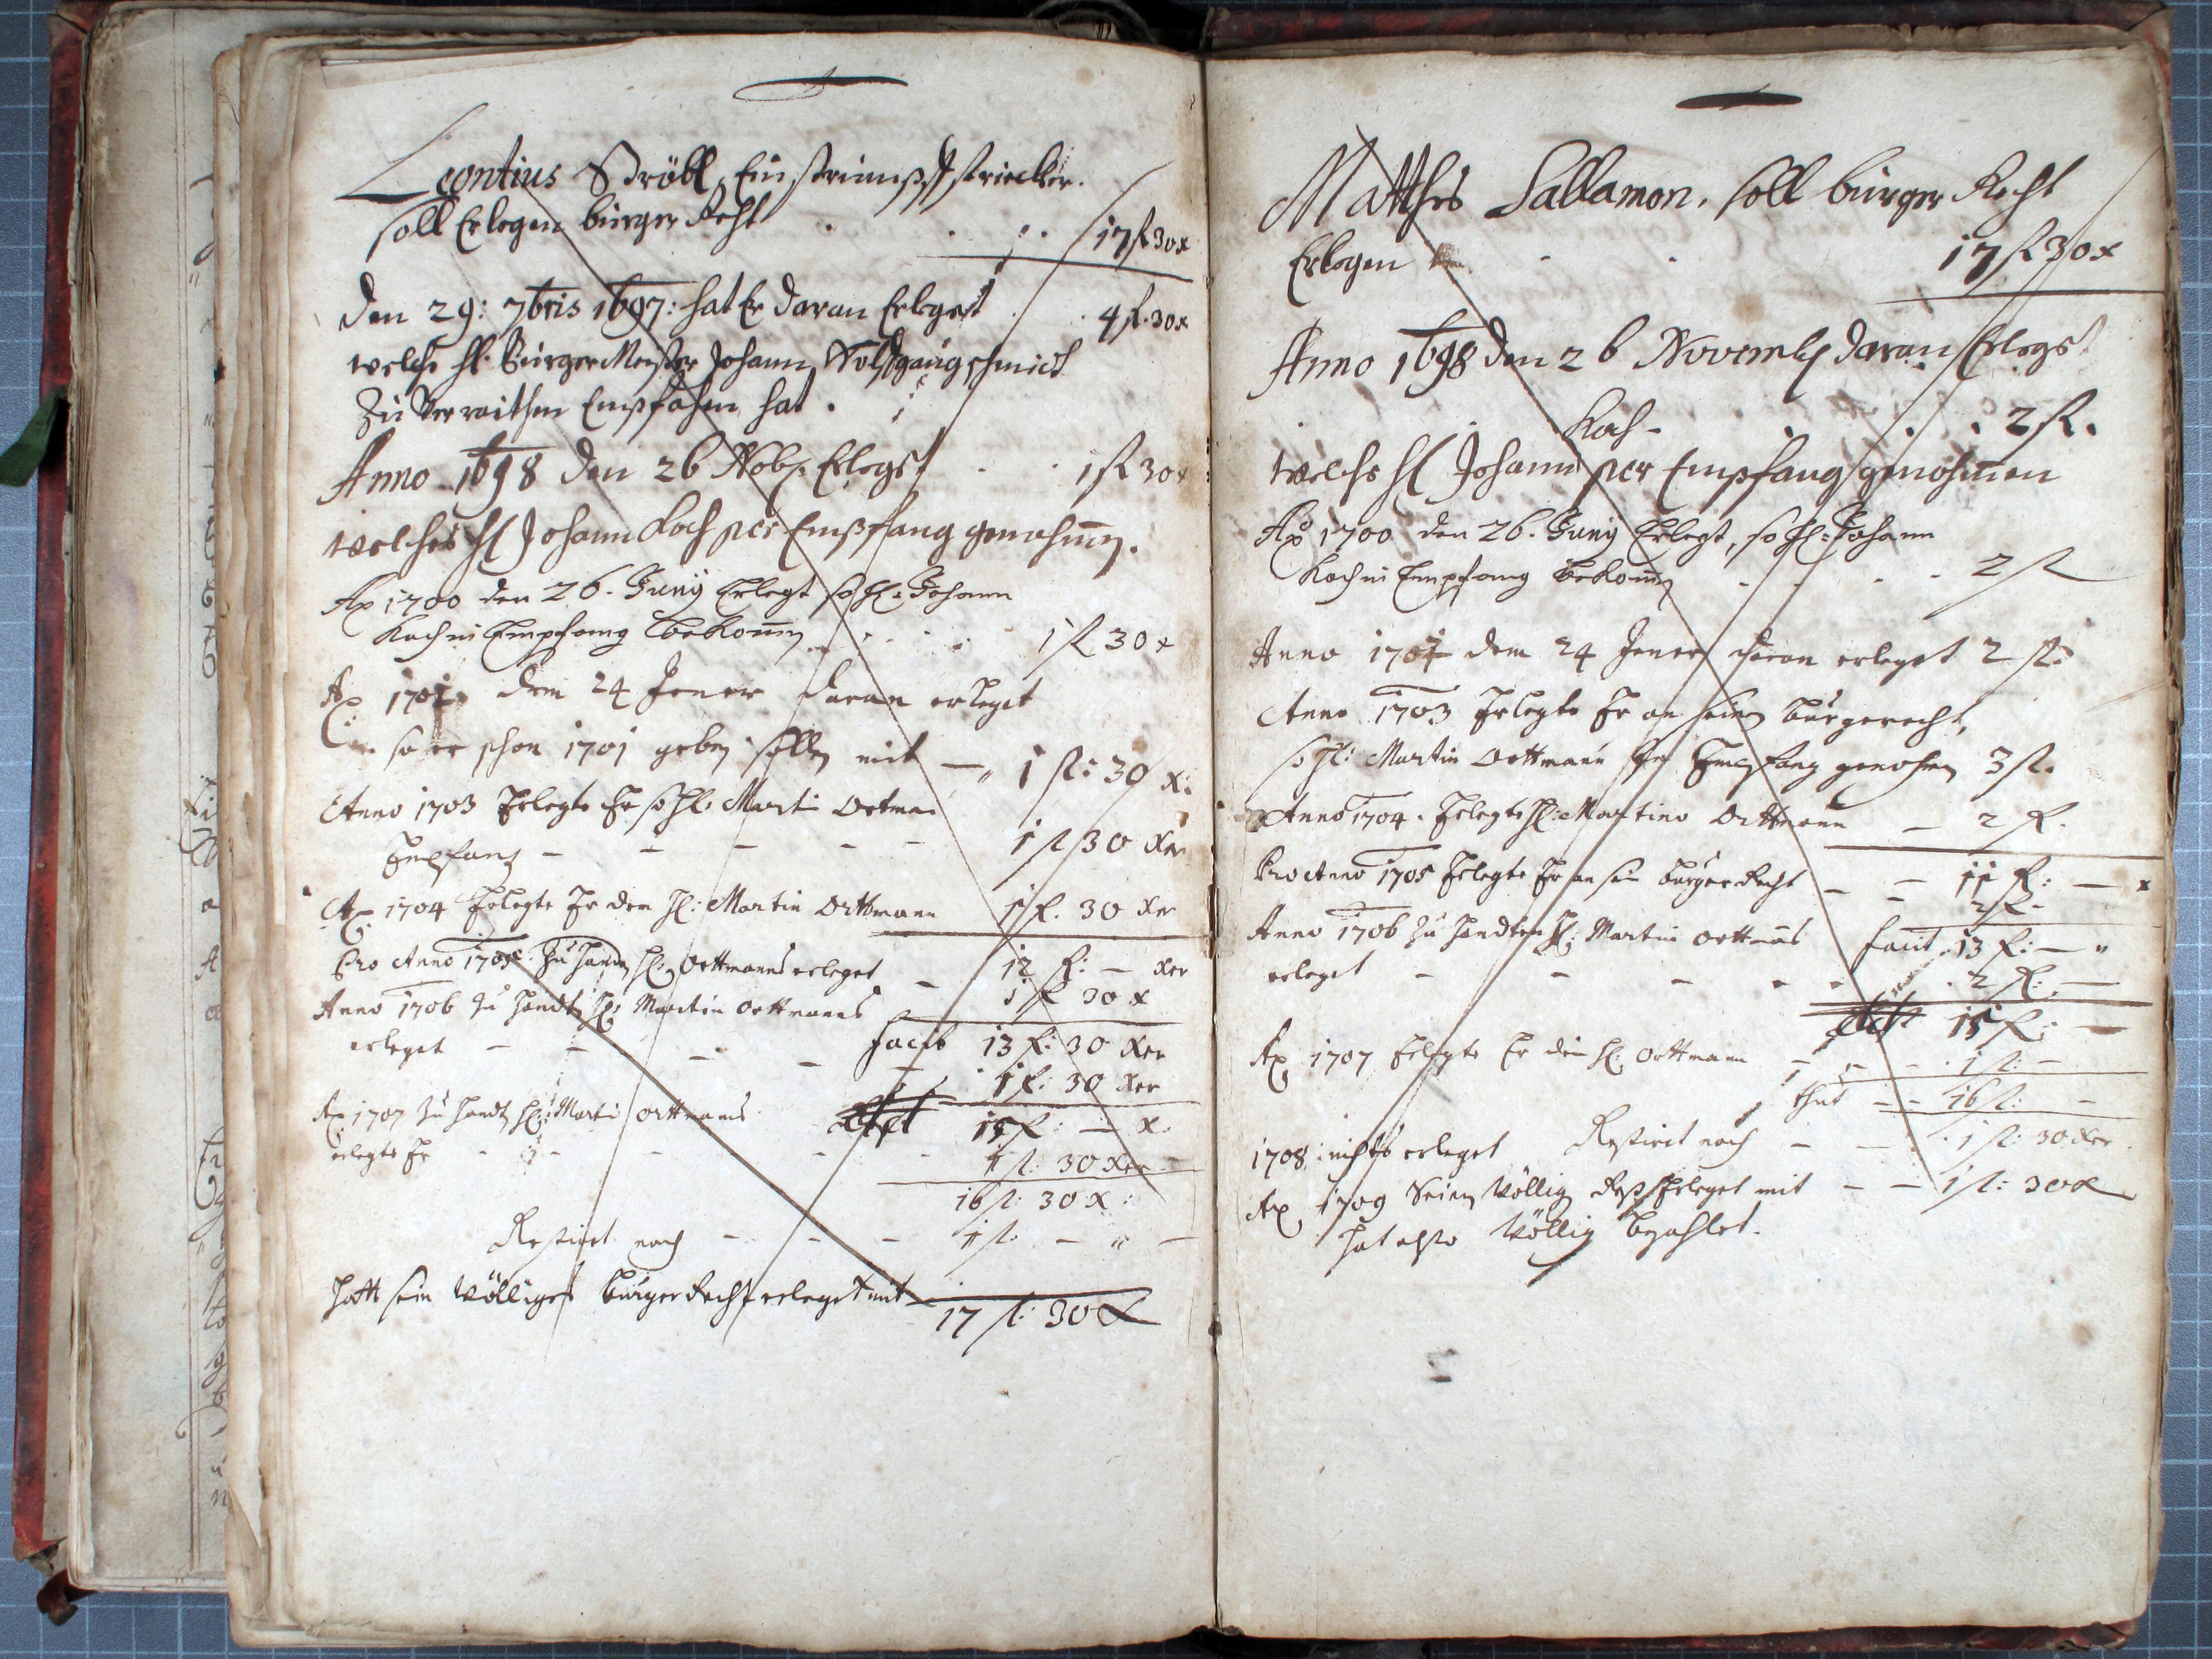 Leontius Ströbl, Ein strimpfstrickher.
soll Erlegen burger Recht . . . 17 fl 30 x
Den 29: 7bris 1697: hat Er daran Erlegt . 4 fl. 30 x
welche H. BurgerMeister Johann Wolfgang schmidt
Zu Verraithen Empfahen hat.
Anno 1698 den 26 Nob: Erlegt . . 1 fl 30 x
welches H Johann Koch per Empfang genohmen.
Ao 1700 den 26. Juny Erlegt so H: Johann
Koch in Empfang bekomen . . . . 1 fl 30 x
Ao 1701 dem 24 Jener daran erleget
so er schon 1701 geben sollen mit — 1 fl: 30 x:
Anno 1703 Erlegte Er so H: Martin Ortman
Empfang – – – – – 1 fl 30 xer
Ao 1704 Erlegte Er dem H: Martin Orttmann 1 fl. 30 xer
12 fl: — xer
Pro Anno 1705 Zu Handen H: Orttmanns erleget – 1 fl 30 x
Anno 1706 Zu Handten H: Martin Orttmanns facit 13 fl: 30 xer
erleget – – – – 1 fl: 30 xer
15 fl: — x
Ao 1707 Zu Handten H: Martin Orttmanns
erlegte Er - - - - - 1 fl: 30 xer
16 fl: 30 x:
Restiret noch – – – 1 fl: — " —
Hatt sein Völliges burger Recht erleget mit 17 fl: 30 x
Matthes Sallamon. soll burger Recht
Erlegen . . 17 fl 30 x
Anno 1698 den 26 Novemb daran Erlegt
. . . . 2 fl.
Koch
welches H Johann per Empfang genohmen
Ao 1700 den 26. Juny Erlegt, so H: Johann
Koch in Empfang bekomen . . . . 2 fl
Anno 1701 dem 24 Jener daran erleget 2 fl:
Anno 1703 Erlegte Er an seinen burgerecht,
so H: Martin Orttmann in Empfang genohmen 3 fl.
Anno 1704. Erlegte H: Martino Orttmann — 2 fl.
11 fl: — x
Pro Anno 1705 Erlegte Er an sein burger Recht — — 2 fl.
Anno 1706 Zu Handten H: Martin Orttmans facit 13 fl: — "
erleget – – – . . 2 fl: —
15 fl: —
Ao 1707 Erlegte Er dem H: Orttmann – – – 1 fl: –
thut — – 16 fl: –
1708 nichts erleget Restiret noch – – 1 fl: 30 xer
Ao 1709 Seinen Völligen Rest Erleget mit – – 1 fl: 30 x
Hat also Völlig bezahlet.